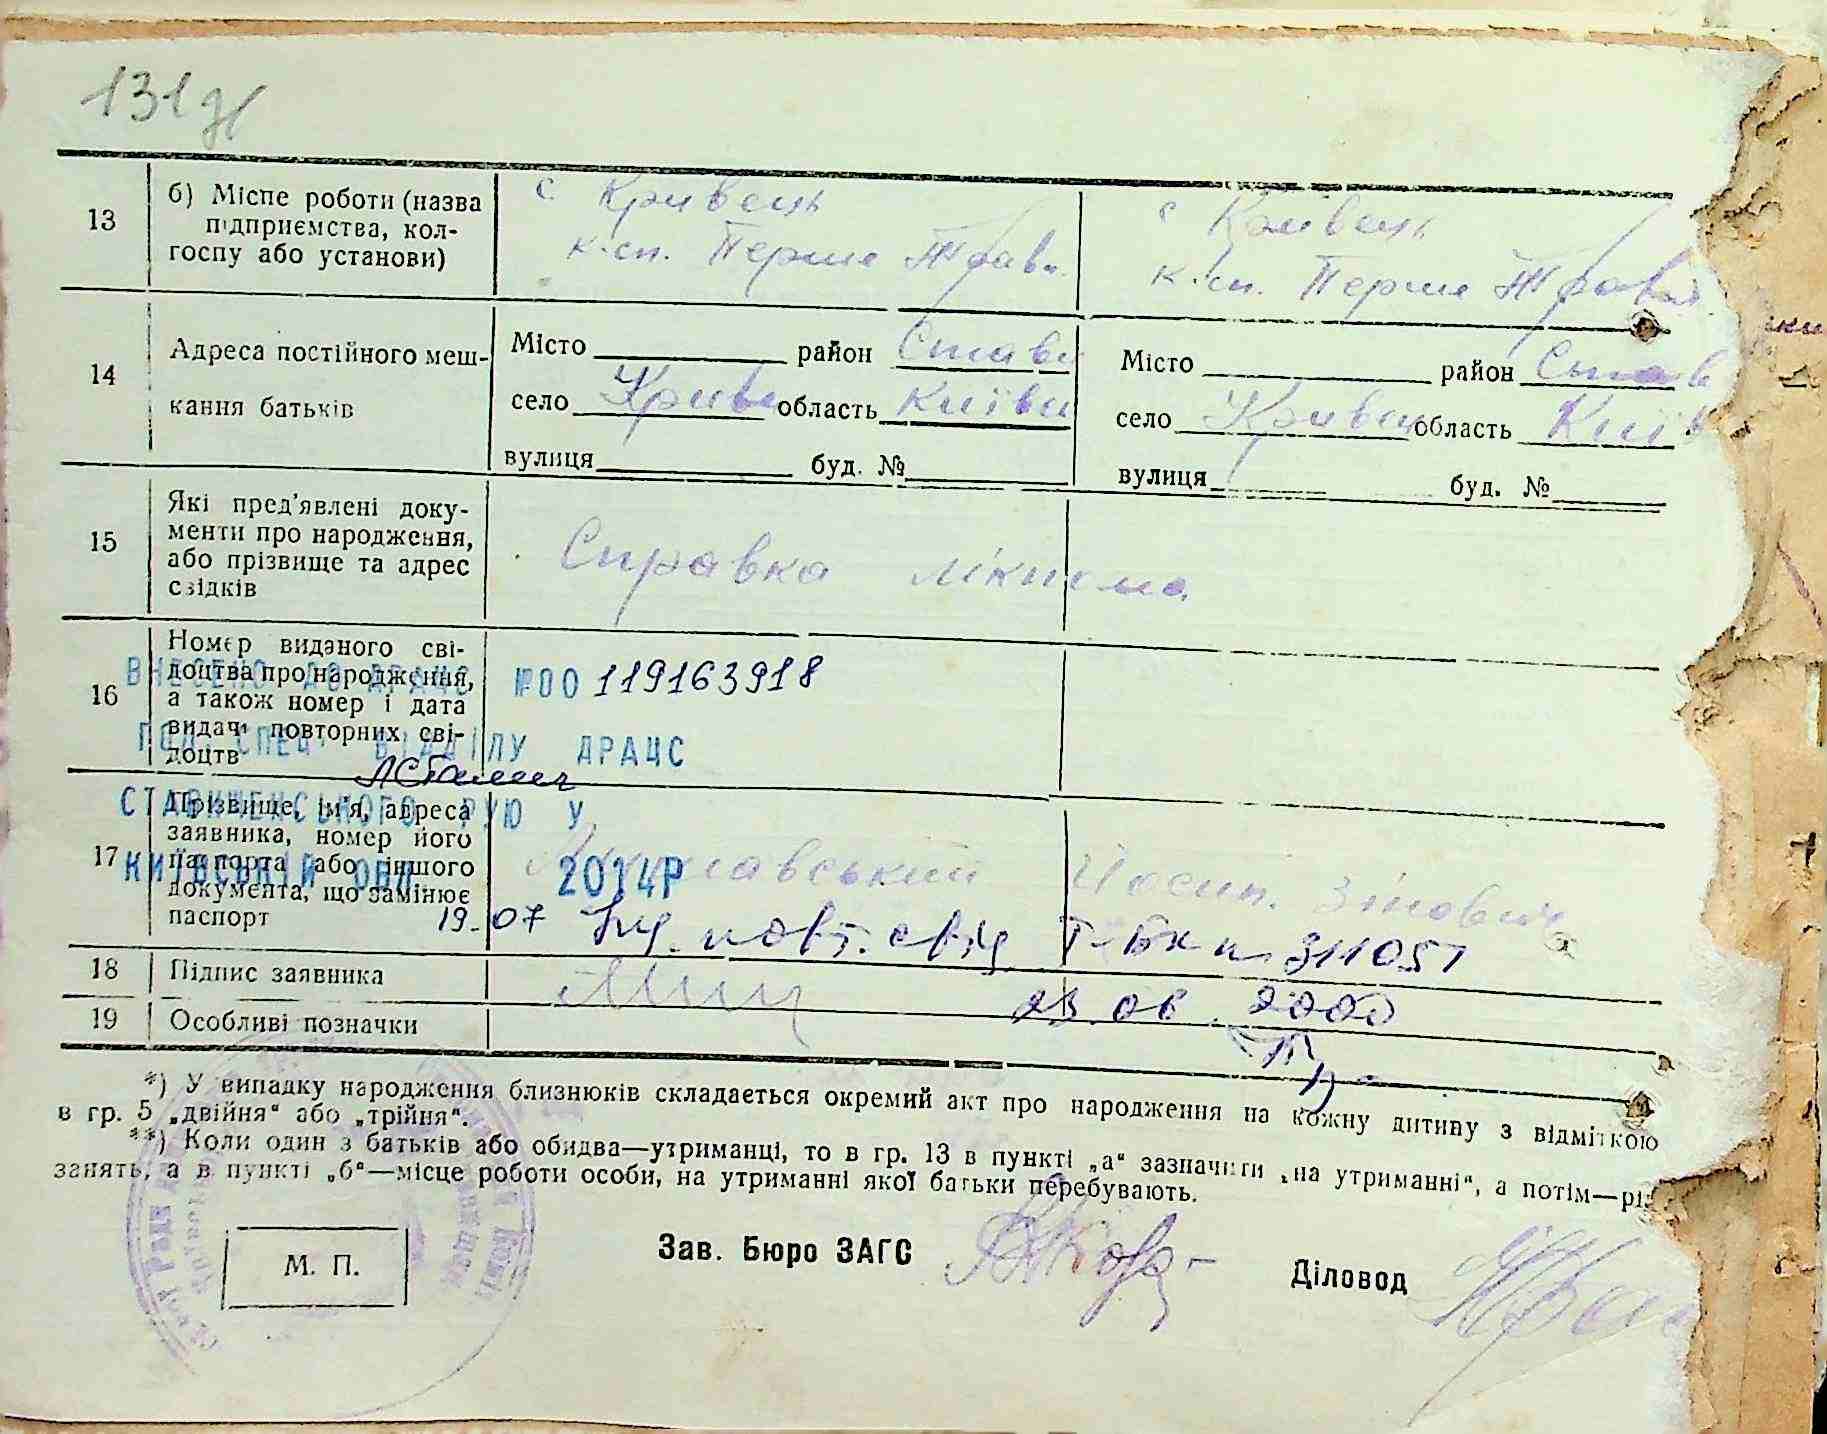 131
13
б) Місце роботи (назва
підприємства, кол-
госпу або установи)
с Кривець
к-сп. Перше Трав.
с Кривець
к-сп. Перше Трав
14
Адреса постійного меш-
кання батьків
Місто район Стави
село Криве область Київи
вулиця буд. №
Місто район Став
село Кривец область Київ
вулиця буд. №
15
Які пред'явлені доку-
менти про народження,
або прізвище та адрес
свідків
Справка лікпома
16
Номер виданого сві-
доцтва про народження,
а також номер і дата
видачі повторних сві-
доцтв
ВНЕСЕНО ДО ДРАЦС №00119163918
ГОЛ. СПЕЦ. ВІДДІЛУ ДРАЦС
СТАВИЩЕНСЬКОГО РУЮ У
КИЇВСЬКІЙ ОБЛ. 2014Р
17
Прізвище, ім'я, адреса
заявника, номер його
паспорта або іншого
документа, що замінює
паспорт
Йосип. Зінович
19.07 повт. свід І-БК № 311051
18
Підпис заявника
23.06.2000
19
Особливі позначки
*) У випадку народження близнюків складається окремий акт про народження на кожну дитину з відміткою
в гр. 5 „двійня“ або „трійня“.
**) Коли один з батьків або обидва—утриманці, то в гр. 13 в пункті „а“ зазначити „на утриманні“, а потім—рід
занять, а в пункті „б“—місце роботи особи, на утриманні якої батьки перебувають.
М. П.
Зав. Бюро ЗАГС
Діловод